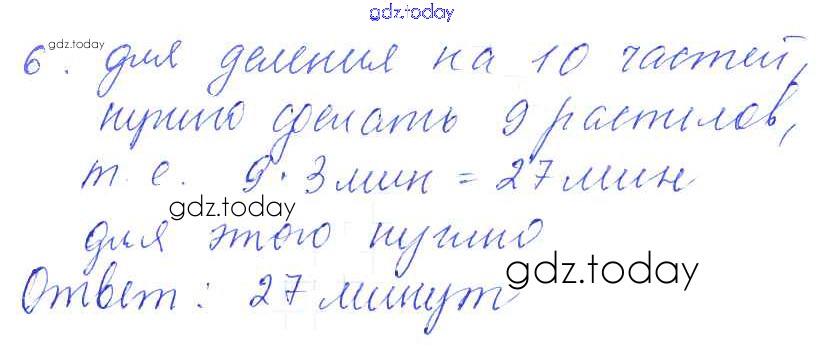 gdz.today
gdz.today
6. для деления на 10 частей,
нужно сделать 9 распилов,
т.е. 9·3мин = 27мин
gdz.today
для этого нужно
gdz.today
Ответ: 27 минут